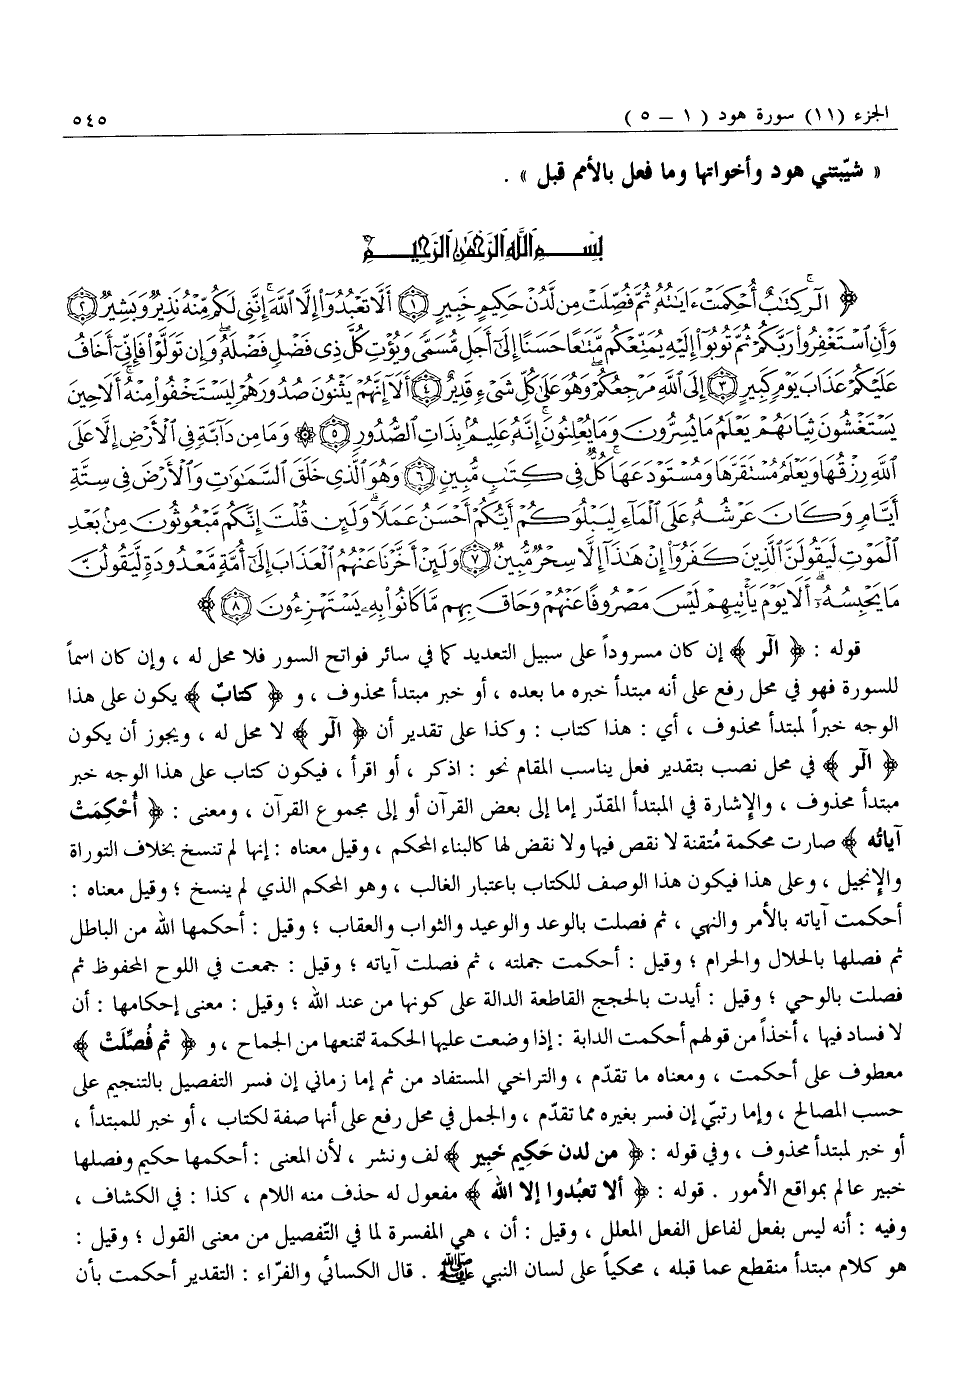 الجزء (١١) سورة هود ( ١ – ٥ ) ٥٤٥
« شيّبتني هود وأخواتها وما فعل بالأمم قبل » .
بِسْمِ اللَّهِ الرَّحْمَٰنِ الرَّحِيمِ
﴿ الٓرۚ كِتَٰبٌ أُحْكِمَتْ ءَايَٰتُهُۥ ثُمَّ فُصِّلَتْ مِن لَّدُنْ حَكِيمٍ خَبِيرٍ ۝١ أَلَّا تَعْبُدُوٓا۟ إِلَّا ٱللَّهَۚ إِنَّنِى لَكُم مِّنْهُ نَذِيرٌ وَبَشِيرٌ ۝٢
وَأَنِ ٱسْتَغْفِرُوا۟ رَبَّكُمْ ثُمَّ تُوبُوٓا۟ إِلَيْهِ يُمَتِّعْكُم مَّتَٰعًا حَسَنًا إِلَىٰٓ أَجَلٍ مُّسَمًّى وَيُؤْتِ كُلَّ ذِى فَضْلٍ فَضْلَهُۥۖ وَإِن تَوَلَّوْا۟ فَإِنِّىٓ أَخَافُ
عَلَيْكُمْ عَذَابَ يَوْمٍ كَبِيرٍ ۝٣ إِلَى ٱللَّهِ مَرْجِعُكُمْۖ وَهُوَ عَلَىٰ كُلِّ شَىْءٍ قَدِيرٌ ۝٤ أَلَآ إِنَّهُمْ يَثْنُونَ صُدُورَهُمْ لِيَسْتَخْفُوا۟ مِنْهُۚ أَلَا حِينَ
يَسْتَغْشُونَ ثِيَابَهُمْ يَعْلَمُ مَا يُسِرُّونَ وَمَا يُعْلِنُونَۚ إِنَّهُۥ عَلِيمٌۢ بِذَاتِ ٱلصُّدُورِ ۝٥ ۞ وَمَا مِن دَآبَّةٍ فِى ٱلْأَرْضِ إِلَّا عَلَى
ٱللَّهِ رِزْقُهَا وَيَعْلَمُ مُسْتَقَرَّهَا وَمُسْتَوْدَعَهَاۚ كُلٌّ فِى كِتَٰبٍ مُّبِينٍ ۝٦ وَهُوَ ٱلَّذِى خَلَقَ ٱلسَّمَٰوَٰتِ وَٱلْأَرْضَ فِى سِتَّةِ
أَيَّامٍ وَكَانَ عَرْشُهُۥ عَلَى ٱلْمَآءِ لِيَبْلُوَكُمْ أَيُّكُمْ أَحْسَنُ عَمَلًاۗ وَلَئِن قُلْتَ إِنَّكُم مَّبْعُوثُونَ مِنۢ بَعْدِ
ٱلْمَوْتِ لَيَقُولَنَّ ٱلَّذِينَ كَفَرُوٓا۟ إِنْ هَٰذَآ إِلَّا سِحْرٌ مُّبِينٌ ۝٧ وَلَئِنْ أَخَّرْنَا عَنْهُمُ ٱلْعَذَابَ إِلَىٰٓ أُمَّةٍ مَّعْدُودَةٍ لَّيَقُولُنَّ
مَا يَحْبِسُهُۥٓۗ أَلَا يَوْمَ يَأْتِيهِمْ لَيْسَ مَصْرُوفًا عَنْهُمْ وَحَاقَ بِهِم مَّا كَانُوا۟ بِهِۦ يَسْتَهْزِءُونَ ۝٨ ﴾
قوله : ﴿ الٓر ﴾ إن كان مسروداً على سبيل التعديد كما في سائر فواتح السور فلا محل له ، وإن كان اسماً
للسورة فهو في محل رفع على أنه مبتدأ خبره ما بعده ، أو خبر مبتدأ محذوف ، و ﴿ كتابٌ ﴾ يكون على هذا
الوجه خبراً لمبتدأ محذوف ، أي : هذا كتاب : وكذا على تقدير أن ﴿ الٓر ﴾ لا محل له ، ويجوز أن يكون
﴿ الٓر ﴾ في محل نصب بتقدير فعل يناسب المقام نحو : اذكر ، أو اقرأ ، فيكون كتاب على هذا الوجه خبر
مبتدأ محذوف ، والإشارة في المبتدأ المقدّر إما إلى بعض القرآن أو إلى مجموع القرآن ، ومعنى : ﴿ أُحْكِمَتْ
آياتُه ﴾ صارت محكمة مُتقنة لا نقص فيها ولا نقض لها كالبناء المحكم ، وقيل معناه : إنها لم تنسخ بخلاف التوراة
والإنجيل ، وعلى هذا فيكون هذا الوصف للكتاب باعتبار الغالب ، وهو المحكم الذي لم ينسخ ؛ وقيل معناه :
أحكمت آياته بالأمر والنهي ، ثم فصلت بالوعد والوعيد والثواب والعقاب ؛ وقيل : أحكمها الله من الباطل
ثم فصلها بالحلال والحرام ؛ وقيل : أحكمت جملته ، ثم فصلت آياته ؛ وقيل : جمعت في اللوح المحفوظ ثم
فصلت بالوحي ؛ وقيل : أيدت بالحجج القاطعة الدالة على كونها من عند الله ؛ وقيل : معنى إحكامها : أن
لا فساد فيها ، أخذاً من قولهم أحكمت الدابة : إذا وضعت عليها الحكمة لتمنعها من الجماح ، و ﴿ ثم فُصِّلَتْ ﴾
معطوف على أحكمت ، ومعناه ما تقدّم ، والتراخي المستفاد من ثم إما زماني إن فسر التفصيل بالتنجيم على
حسب المصالح ، وإما رتبيّ إن فسر بغيره مما تقدّم ، والجمل في محل رفع على أنها صفة لكتاب ، أو خبر للمبتدأ ،
أو خبر لمبتدأ محذوف ، وفي قوله : ﴿ من لدن حَكِيم خَبِير ﴾ لف ونشر ، لأن المعنى : أحكمها حكيم وفصلها
خبير عالم بمواقع الأمور . قوله : ﴿ ألا تعبُدوا إلا الله ﴾ مفعول له حذف منه اللام ، كذا : في الكشاف ،
وفيه : أنه ليس بفعل لفاعل الفعل المعلل ، وقيل : أن ، هي المفسرة لما في التّفصيل من معنى القول ؛ وقيل :
هو كلام مبتدأ منقطع عما قبله ، محكياً على لسان النبي ﷺ . قال الكسائي والفرّاء : التقدير أحكمت بأن